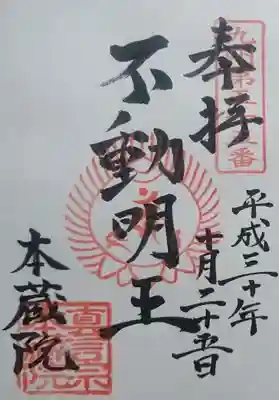 奉拝
平成三十年
十月二十五日
不動明王
本蔵院